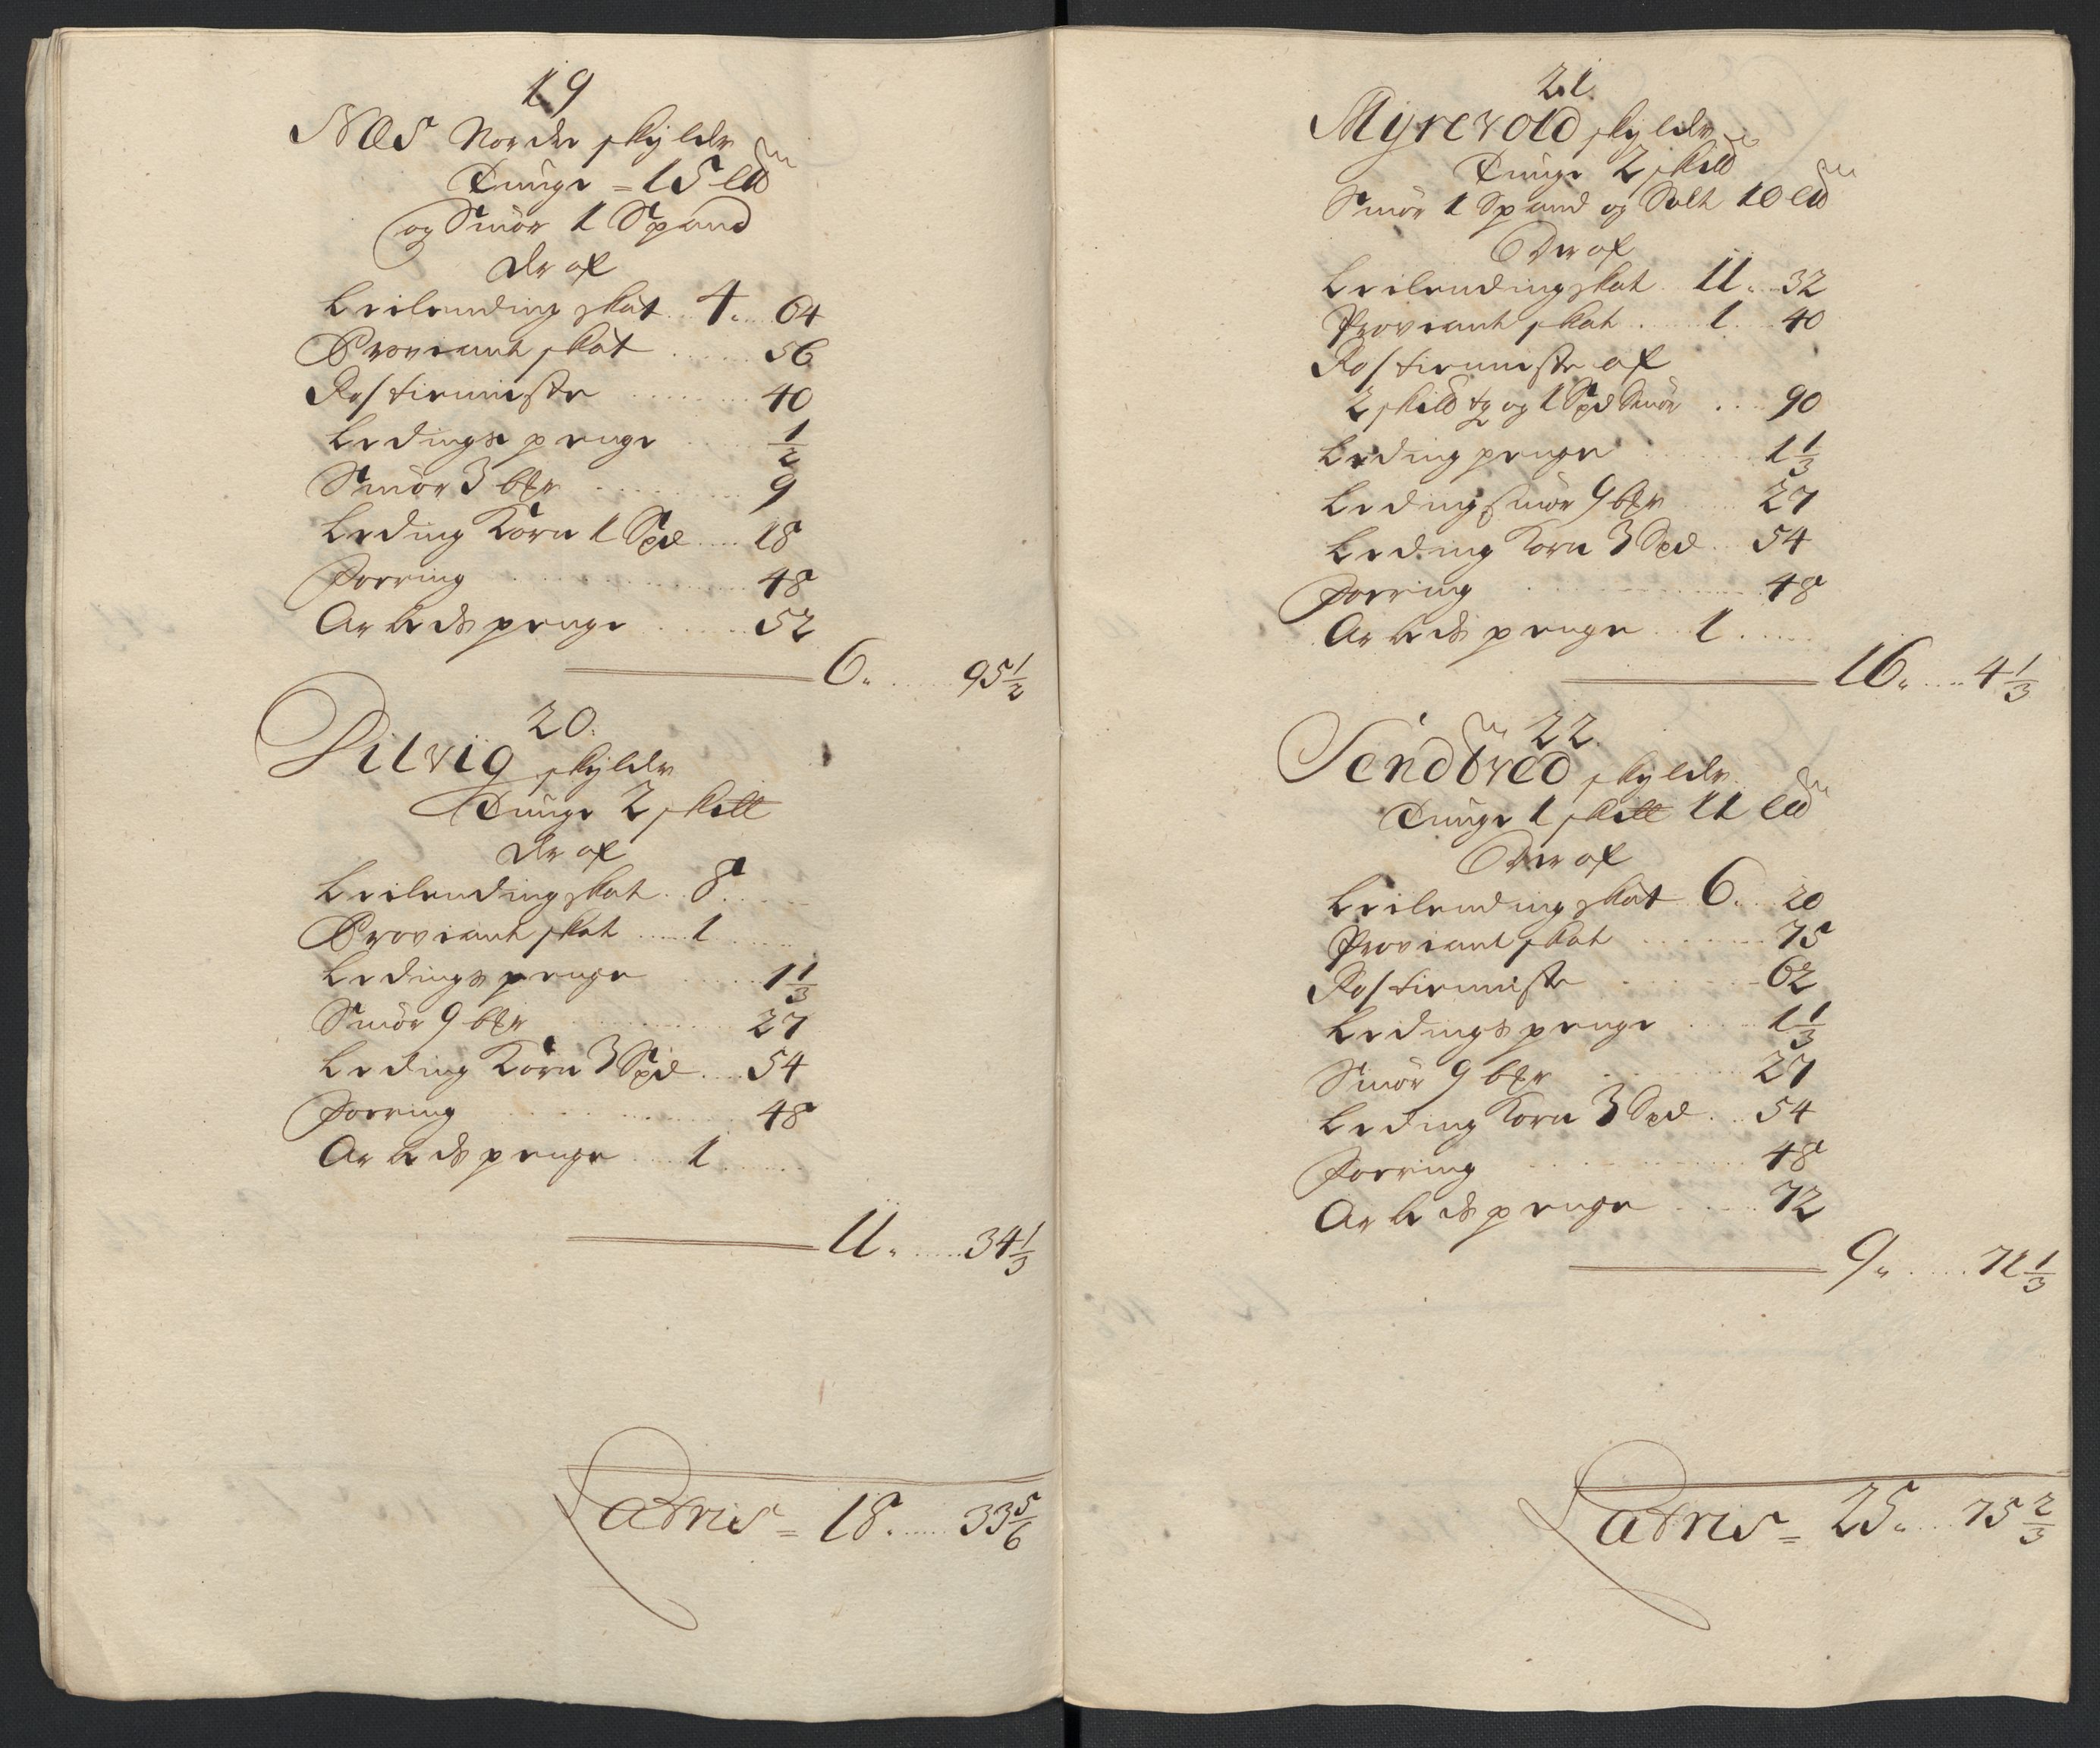 19
Næs Nordre skylder
Tunge = 15 ℔
og Smör 1 Spand
der af
Leilending skat 4. 64
Proviant skat 56
Rostienniste 40
Ledings penge 1/2
Smör 3 bpr 9
Leding Korn 1 Spd 18
Forring 48
Arbeds penge 52
6. 95 1/2
20.
Silvig skylder
Tunge 2 skill
der af
Leilending skat 8.
Proviant skat 1
Ledings penge 1 1/3
Smör 9 bpr 27
Leding Korn 3 Spd 54
Forring 48
Arbeds penge 1
11. 34 1/3
Latris = 18. 33 5/6
21.
Myrevold skylder
Tunge 2 skild
Smör 1 Spand og Salt 10 ℔
Der af
Leilending skat 11. 32
Proviant skat 1. 40
Rostienniste af
2 skild tg og 1 Spd Smör 90
Leding penge 1 1/3
Leding smör 9 bpr 27
Leding Korn 3 Spd 54
Forring 48
Arbeds penge 1
16. 4 1/3
22.
skylder
Tunge 1 skill 11 ℔
Der af
Leilending skat 6. 20
Proviant skat 75
Rostienniste 62
Ledings penge 1 1/3
Smör 9 bpr 27
Leding Korn 3 Spd 54
Forring 48
Arbeds penge 72
9. 71 1/3
Latris = 25. 75 2/3